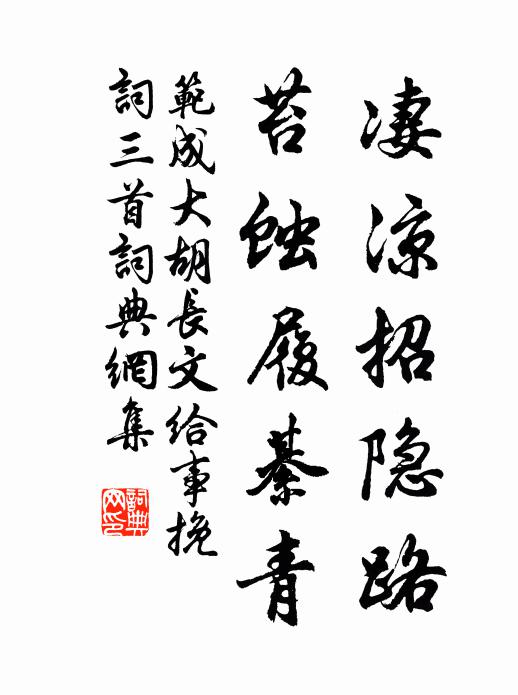 凄凉招隐路
苔蚀履綦青
範成大胡長文给事挽
詞三首詞典網集
詞典網印